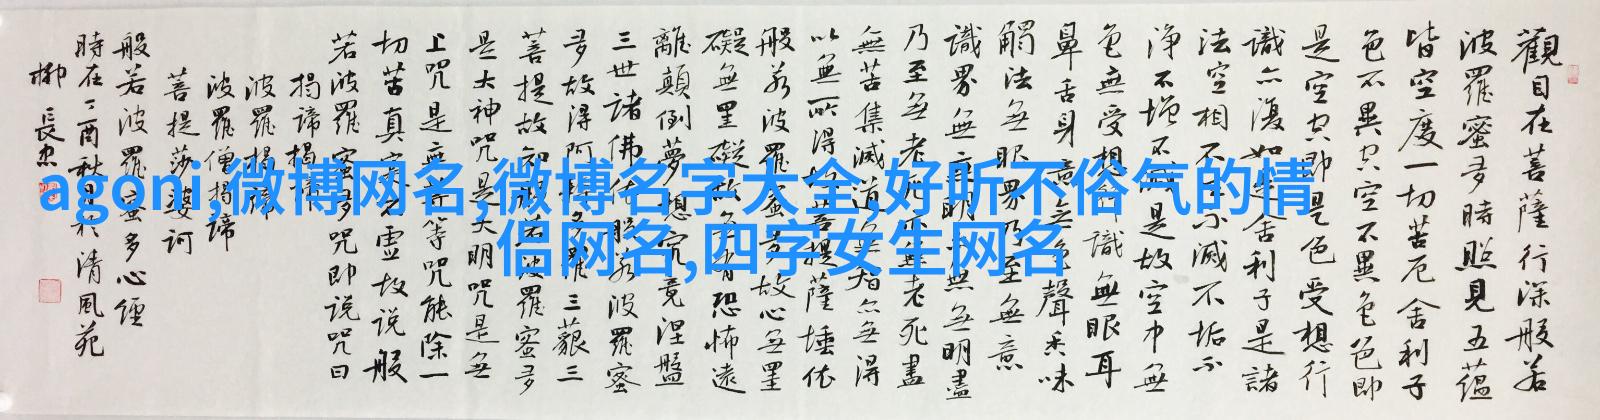 agoni,微博网名,微博名字大全,好听不俗气的情
侣网名,四字女生网名
觀自在菩薩行深般若
波羅蜜多時照見五蘊
皆空度一切苦厄舍利子
色不異空空不異色色即
是空空即是色受想行
識亦復如是舍利子是諸
法空相不生不滅不垢不
净不增不減是故空中無
色無受想行識無眼耳
鼻舌身意無色聲香味
觸法無眼界乃至無意
識界無無明亦無無明盡
乃至無老死亦無老死盡
無苦集滅道無智亦無得
以無所得故菩提薩埵依
般若波羅蜜多故心無罣
礙無罣礙故無有恐怖遠
離顛倒夢想究竟涅盤
三世諸佛依般若波羅蜜
多故得阿耨多羅三藐三
菩提故知般若波羅蜜多
是大神咒是大明咒是無
上咒是無等等咒能除一
切苦真實不虛故说般
若波羅蜜多咒即说咒曰
揭諦揭諦
波羅揭諦
波羅僧揭諦
菩提莎婆訶
般若波羅蜜多心經
時在丁酉秋月於清風苑
柳長忠